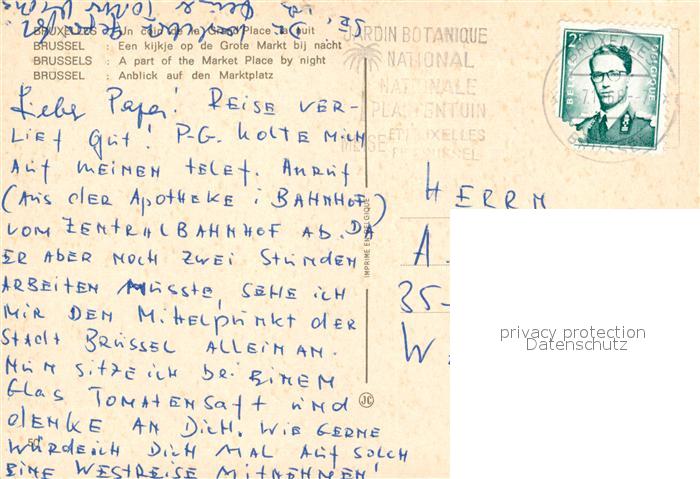 BRUXELLES : Un coin de la Grand'Place, la nuit
BRUSSEL : Een kijkje op de Grote Markt bij nacht
BRUSSELS : A part of the Market Place by night
BRÜSSEL : Anblick auf den Marktplatz
JARDIN BOTANIQUE
NATIONAL
NATIONALE
PLANTENTUIN
MEISE
BRUXELLES
BRUSSEL
BRUXELLES
2F
BELGIE BELGIQUE
Lieber Papa! REISE VER-
LIEF GUT! P.-G. HOLTE MICH
AUF MEINEN TELEF. ANRUF
(AUS DER APOTHEKE i BAHNHOF)
VOM ZENTRALBAHNHOF AB. DA
ER ABER NOCH ZWEI STUNDEN
ARBEITEN MUSSTE, SEHE ICH
MIR DEN MITTELPUNKT DER
STADT BRÜSSEL ALLEIN AN.
NUN SITZE ICH BEI EINEM
GLAS TOMATENSAFT UND
DENKE AN DICH. WIE GERNE
WÜRDE ICH DICH MAL AUF SOLCH
EINE WESTREISE MITNEHMEN!
50
IMPRIME EN BELGIQUE
JC
HERRN
A.
35-
W
privacy protection
Datenschutz